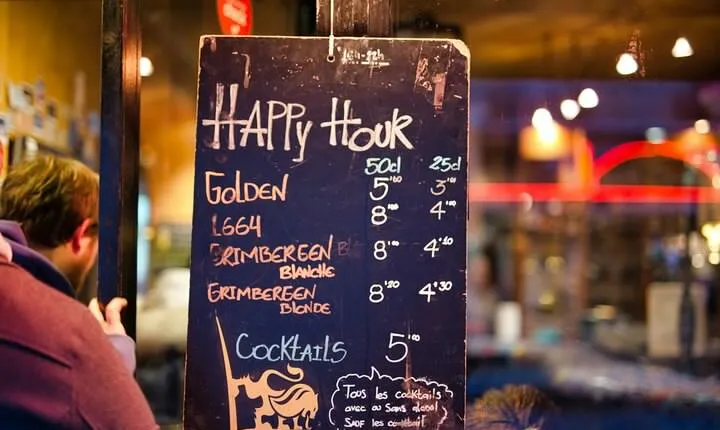 16h-22h
HAPPY HOUR
50cl 25cl
GOLDEN 5'00 3'00
1664 8'00 4'00
GRIMBERGEN 8'00 4'10
BLANCHE
GRIMBERGEN 8'20 4'30
BLONDE
COCKTAILS 5'00
Tous les cocktails
avec ou Sans alcool
SAUF les cocktail